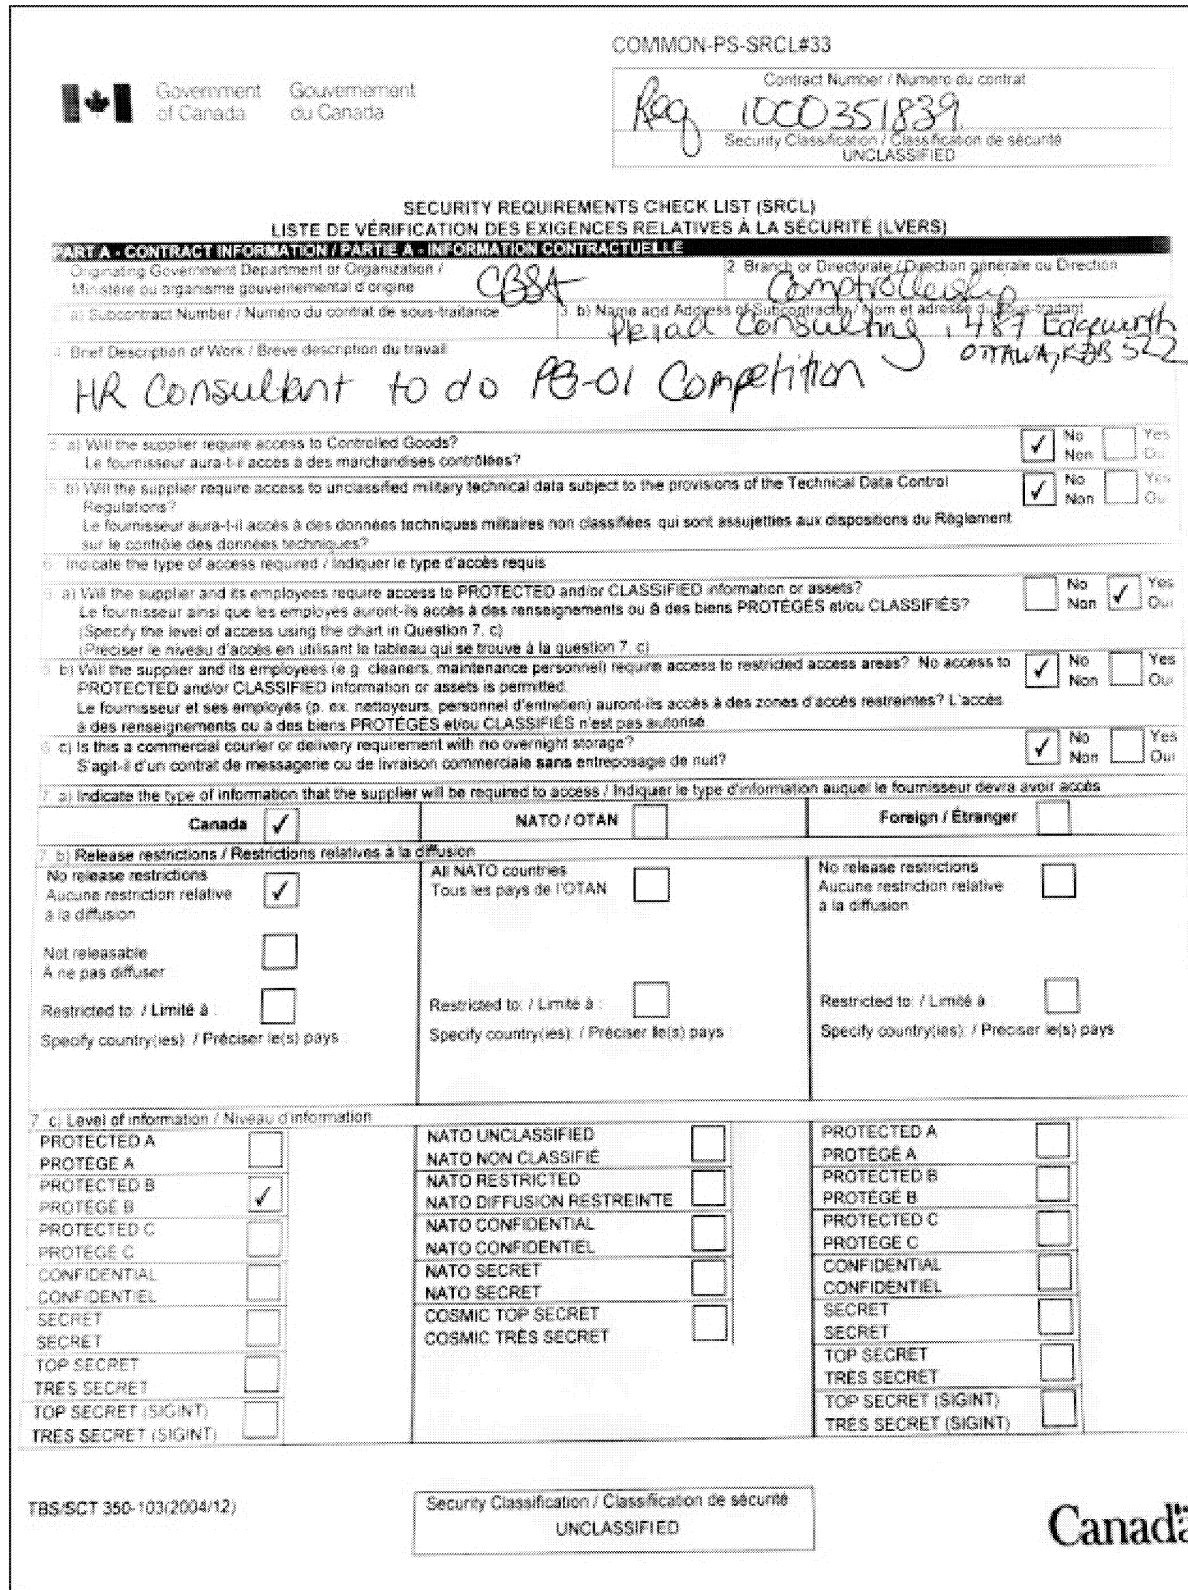 COMMON-PS-SRCL#33
Government of Canada
Gouvernement du Canada
Contract Number / Numéro du contrat
Req 1000351839
Security Classification / Classification de sécurité
UNCLASSIFIED
SECURITY REQUIREMENTS CHECK LIST (SRCL)
LISTE DE VÉRIFICATION DES EXIGENCES RELATIVES À LA SÉCURITÉ (LVERS)
PART A - CONTRACT INFORMATION / PARTIE A - INFORMATION CONTRACTUELLE
1. Originating Government Department or Organization /
Ministère ou organisme gouvernemental d'origine
CBSA
2. Branch or Directorate / Direction générale ou Direction
Comptrollership
3. a) Subcontract Number / Numéro du contrat de sous-traitance
3. b) Name and Address of Subcontractor / Nom et adresse du sous-traitant
Consulting, 487 Edgeworth
OTTAWA, K2B 5L2
4. Brief Description of Work / Brève description du travail
HR Consultant to do PG-01 Competition
5. a) Will the supplier require access to Controlled Goods?
Le fournisseur aura-t-il accès à des marchandises contrôlées?
✓ No Non
Yes Oui
5. b) Will the supplier require access to unclassified military technical data subject to the provisions of the Technical Data Control
Regulations?
Le fournisseur aura-t-il accès à des données techniques militaires non classifiées qui sont assujetties aux dispositions du Règlement
sur le contrôle des données techniques?
✓ No Non
Yes Oui
6. Indicate the type of access required / Indiquer le type d'accès requis
6. a) Will the supplier and its employees require access to PROTECTED and/or CLASSIFIED information or assets?
Le fournisseur ainsi que les employés auront-ils accès à des renseignements ou à des biens PROTÉGÉS et/ou CLASSIFIÉS?
(Specify the level of access using the chart in Question 7. c)
(Préciser le niveau d'accès en utilisant le tableau qui se trouve à la question 7. c)
No Non
✓ Yes Oui
6. b) Will the supplier and its employees (e.g. cleaners, maintenance personnel) require access to restricted access areas? No access to
PROTECTED and/or CLASSIFIED information or assets is permitted.
Le fournisseur et ses employés (p. ex. nettoyeurs, personnel d'entretien) auront-ils accès à des zones d'accès restreintes? L'accès
à des renseignements ou à des biens PROTÉGÉS et/ou CLASSIFIÉS n'est pas autorisé.
✓ No Non
Yes Oui
6. c) Is this a commercial courier or delivery requirement with no overnight storage?
S'agit-il d'un contrat de messagerie ou de livraison commerciale sans entreposage de nuit?
✓ No Non
Yes Oui
7. a) Indicate the type of information that the supplier will be required to access / Indiquer le type d'information auquel le fournisseur devra avoir accès
Canada ✓
NATO / OTAN
Foreign / Étranger
7. b) Release restrictions / Restrictions relatives à la diffusion
No release restrictions
Aucune restriction relative
à la diffusion
✓
Not releasable
À ne pas diffuser
Restricted to: / Limité à :
Specify country(ies): / Préciser le(s) pays
All NATO countries
Tous les pays de l'OTAN
Restricted to: / Limité à :
Specify country(ies): / Préciser le(s) pays
No release restrictions
Aucune restriction relative
à la diffusion
Restricted to: / Limité à
Specify country(ies): / Préciser le(s) pays
7. c) Level of information / Niveau d'information
PROTECTED A
PROTÉGÉ A
PROTECTED B
PROTÉGÉ B
✓
PROTECTED C
PROTÉGÉ C
CONFIDENTIAL
CONFIDENTIEL
SECRET
SECRET
TOP SECRET
TRÈS SECRET
TOP SECRET (SIGINT)
TRÈS SECRET (SIGINT)
NATO UNCLASSIFIED
NATO NON CLASSIFIÉ
NATO RESTRICTED
NATO DIFFUSION RESTREINTE
NATO CONFIDENTIAL
NATO CONFIDENTIEL
NATO SECRET
NATO SECRET
COSMIC TOP SECRET
COSMIC TRÈS SECRET
PROTECTED A
PROTÉGÉ A
PROTECTED B
PROTÉGÉ B
PROTECTED C
PROTÉGÉ C
CONFIDENTIAL
CONFIDENTIEL
SECRET
SECRET
TOP SECRET
TRÈS SECRET
TOP SECRET (SIGINT)
TRÈS SECRET (SIGINT)
TBS/SCT 350-103(2004/12)
Security Classification / Classification de sécurité
UNCLASSIFIED
Canada